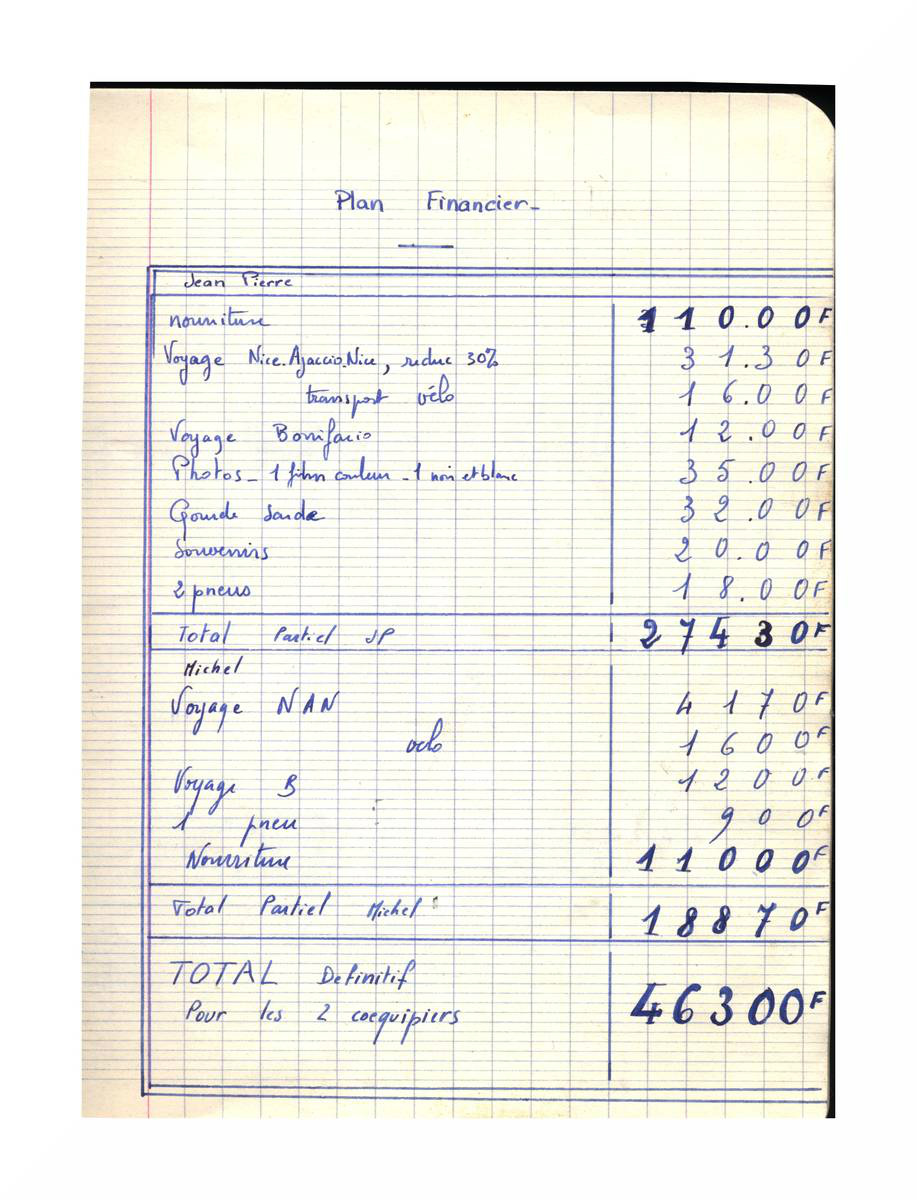 Plan Financier_
Jean Pierre
nourriture 110.00F
Voyage Nice.Ajaccio.Nice, reduc 30% 31.30F
transport vélo 16.00F
Voyage Bonifacio 12.00F
Photos_ 1 film couleur _ 1 noir et blanc 35.00F
32.00F
Souvenirs 20.00F
2 pneus 18.00F
Total Partiel JP 27430F
Michel
Voyage NAN 4170F
velo 1600F
Voyage B 1200F
1 pneu 900F
Nourriture 11000F
Total Partiel Michel 18870F
TOTAL Definitif
Pour les 2 coequipiers 46300F